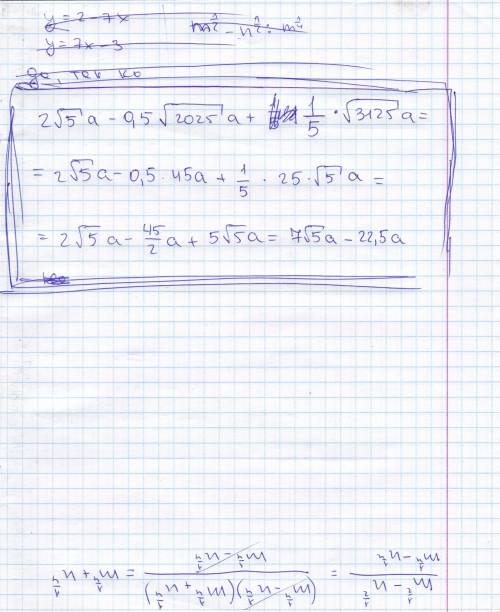 y = 2 - 7x
y = 7x - 3
m^{1/2} - n^{1/2} : m^{1/4}
да, так ко
2√5 a - 0,5 √2025 a + 1/5 · √3125 a =
= 2√5 a - 0,5 · 45a + 1/5 · 25 · √5 a =
= 2√5 a - 45/2 a + 5√5 a = 7√5 a - 22,5a
(m^{1/2} - n^{1/2}) / (m^{1/4} - n^{1/4}) = ((m^{1/4} - n^{1/4})(m^{1/4} + n^{1/4})) / (m^{1/4} - n^{1/4}) = m^{1/4} + n^{1/4}